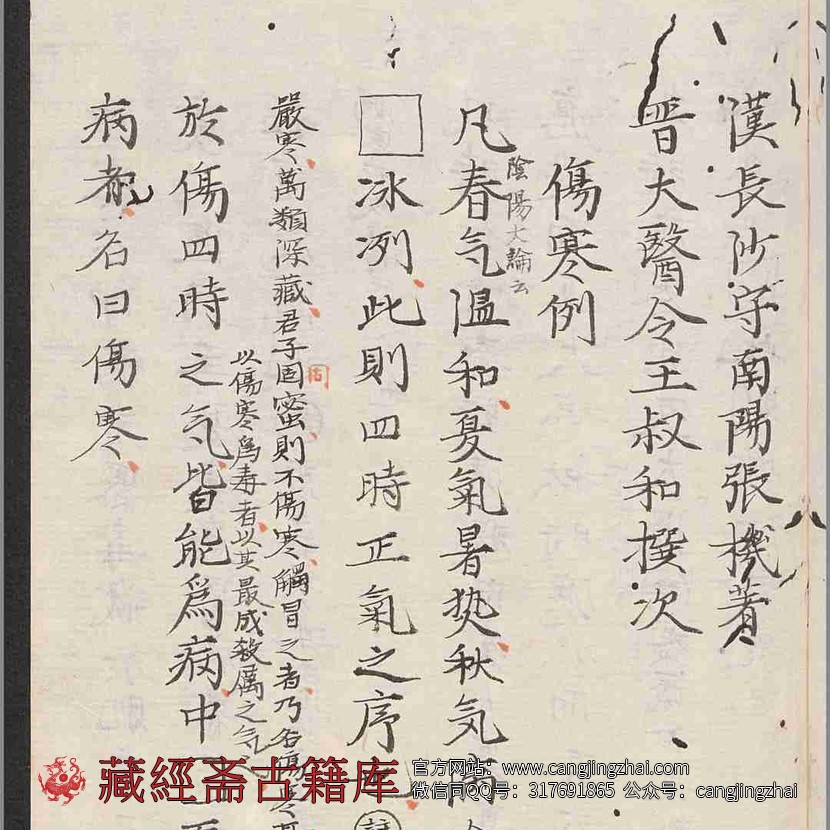 漢長沙守南陽張機著
晋大醫令王叔和撰次
傷寒例
陰陽大論云
凡春气温和夏氣暑热秋气
冰冽此則四時正氣之序
嚴寒萬類深藏君子固蜜則不傷寒觸冒之者乃名傷寒
於傷四時之气皆能爲病
以傷寒爲毒者以其最成殺厲之气
病者名曰傷寒
藏經斋古籍库
官方网站：www.cangjingzhai.com
微信同QQ号：317691865 公众号：cangjingzhai